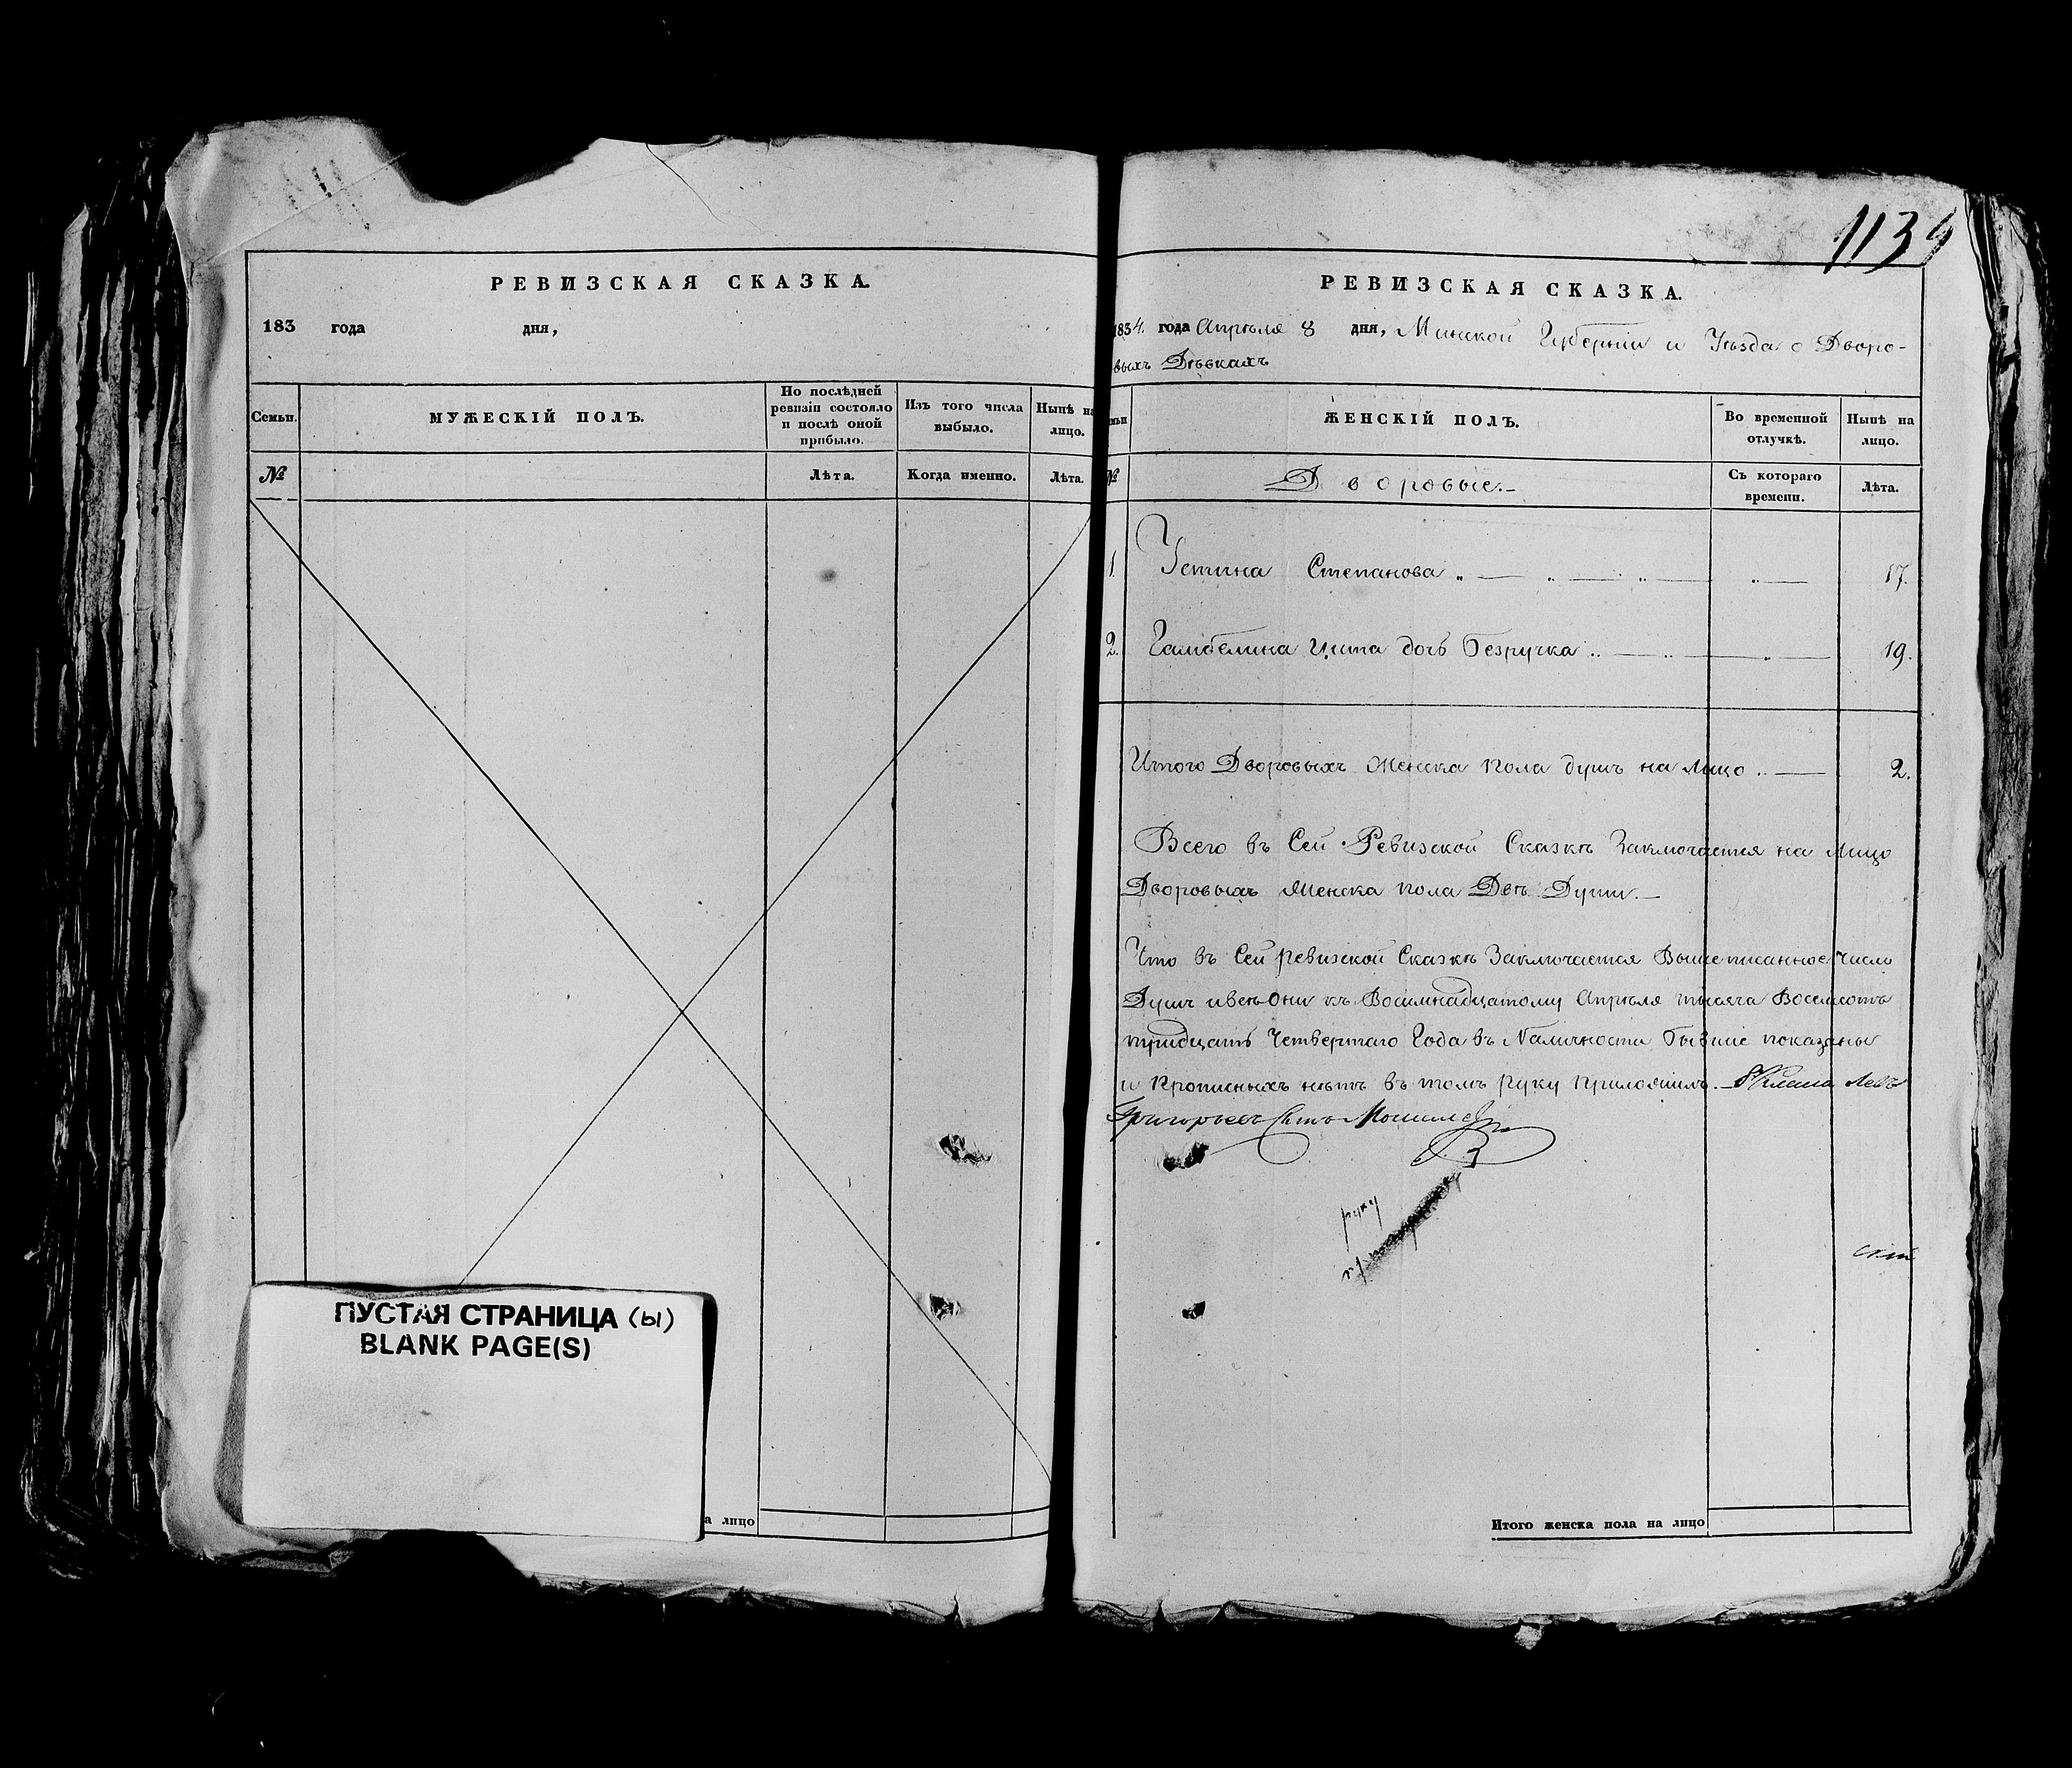 РЕВИЗСКАЯ СКАЗКА.
183 года дня,
Семьи.
МУЖЕСКІЙ ПОЛЪ.
По послѣдней
ревизіи состояло
и послѣ оной
прибыло.
Изъ того числа
выбыло.
Нынѣ на
лицо.
№
Лѣта.
Когда именно.
Лѣта.
ПУСТАЯ СТРАНИЦА (ы)
BLANK PAGE(S)
а лицо
1139
РЕВИЗСКАЯ СКАЗКА.
1834. года Апрѣля 8 дня, Минской Губерніи и Уѣзда о Дворо-
выхъ Дѣвкахъ
ЖЕНСКІЙ ПОЛЪ.
Во временной
отлучкѣ.
Нынѣ на
лицо.
№
Дворовые.-
Съ котораго
времени.
Лѣта.
1. Устина Степанова 17.
2. дочь Безручка 19.
Итого Дворовыхъ Женска пола душъ на Лицо 2.
Всего въ Сей Ревизской Сказкѣ Заключается на Лицо
Дворовыхъ Женска пола Двѣ Души.
Что въ Сей Ревизской Сказкѣ Заключается Вышеписанное Число
Душъ и всѣ Они къ Восимнадцатому Апрѣля тысяча Восемсотъ
тридцать Четвертаго Года въ Наличности Бывшіе показаны
и Прописныхъ нѣтъ въ томъ руку Приложилъ. Левъ
Григорьевъ Сынъ
руку
Итого женска пола на лицо